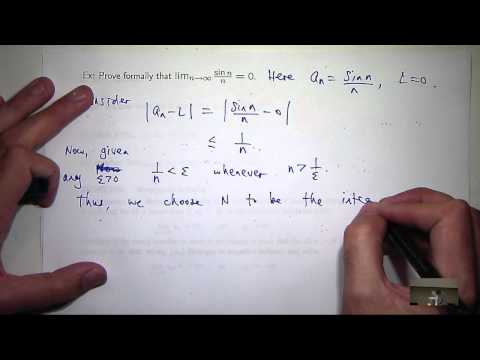 Ex: Prove formally that lim n→∞ sin n / n = 0. Here aₙ = sin n / n, L = 0.
|aₙ - L| = | sin n / n - 0 |
≤ 1/n.
Now, given
any ε>0 1/n < ε whenever n > 1/ε.
Thus, we choose N to be the inte